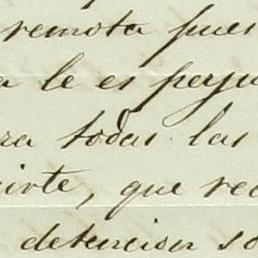 remota pues
a le es perju
ra todas las
uirte, que rec
detencion so